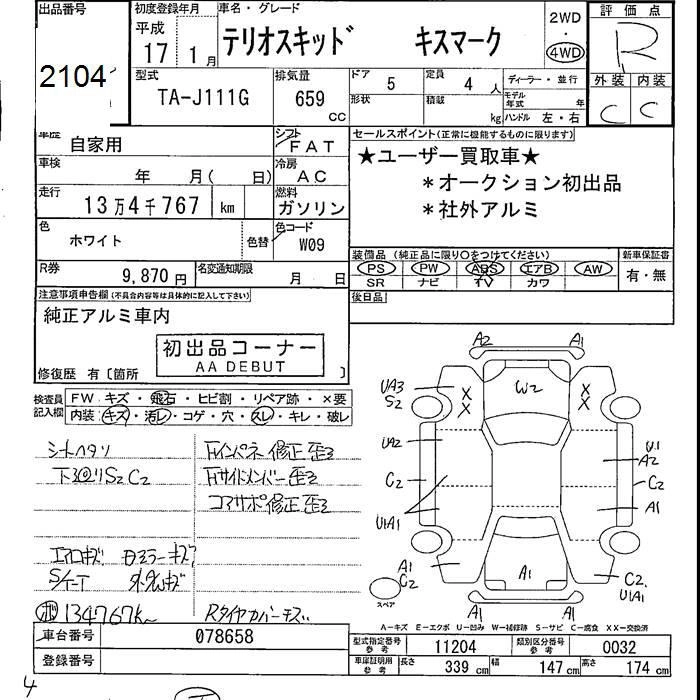 出品番号
2104
初度登録年月
平成
17 1月
車名・グレード
テリオスキッド キスマーク
2WD
・
4WD
評価点
R
外装 内装
C C
型式
TA-J111G
排気量
659
CC
ドア
5
定員
4人
形状
積載
kg
ディーラー・並行
モデル年式 年
ハンドル 左・右
車歴
自家用
シフト
FAT
車検
年 月( 日)
冷房
AC
走行
13万4千767 km
燃料
ガソリン
色
ホワイト
色替
色コード
W09
R券
9,870円
名変通知期限
月 日
セールスポイント(正常に機能するものに限ります)
★ユーザー買取車★
*オークション初出品
*社外アルミ
装備品(純正品に限り○をつけてください)
PS PW ABS エアB AW
SR ナビ TV カワ
新車保証書
有・無
後日品
注意事項申告欄(不具合内容等は具体的に記入して下さい)
純正アルミ車内
初出品コーナー
AA DEBUT
修復歴 有〔箇所 〕
検査員記入欄
FW キズ・飛石・ヒビ割・リペア跡・×要
内装 キズ・汚レ・コゲ・穴・スレ・キレ・破レ
シートヘタリ
下廻りS2 C2
Fインパネ修正歪ミ
Fサイドメンバー歪ミ
コアサポ修正歪ミ
エアロキズ
Rタイヤカバーキズ
A2 A1
UA3
S2
X X
X X
W2
UA2
C2
U1A1
U1
A2
C2
A1
A1
C2
A1
C2
U1A1
A1 A1
スペア
A-キズ E-エクボ U-凹み W-補修跡 S-サビ C-腐食 XX-交換済
車台番号
078658
登録番号
型式指定番号
参考
11204
類別区分番号
参考
0032
車庫証明用
参考
長さ
339cm
幅
147cm
高さ
174cm
4